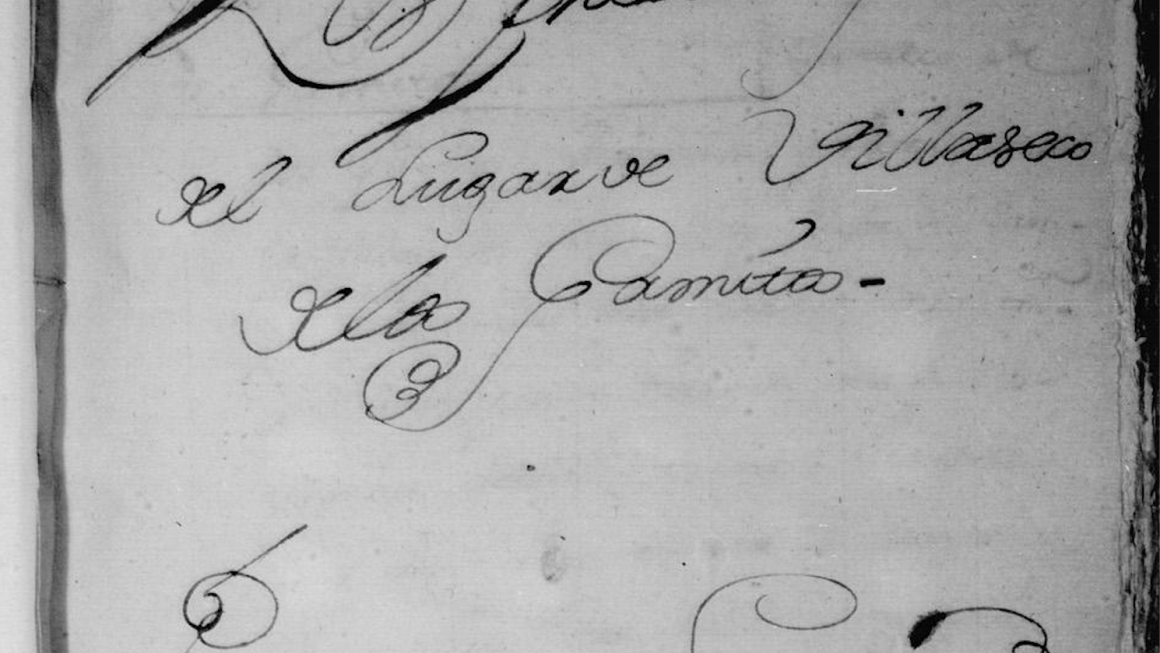 del Lugar de Villaseco
delos Gamitos-